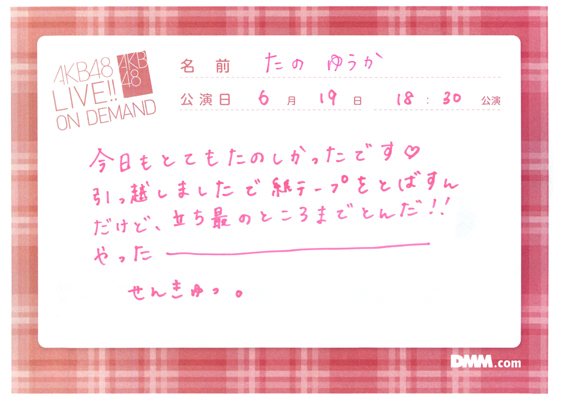 AKB48
LIVE!!
ON DEMAND
AKB
48
名 前 たの ゆうか
公演日 6 月 19 日 18 : 30 公演
今日もとてもたのしかったです♡
引っ越しましたで紙テープをとばすん
だけど、立ち最のところまでとんだ!!
やった ――――――
せんきゅっ。
DMM.com